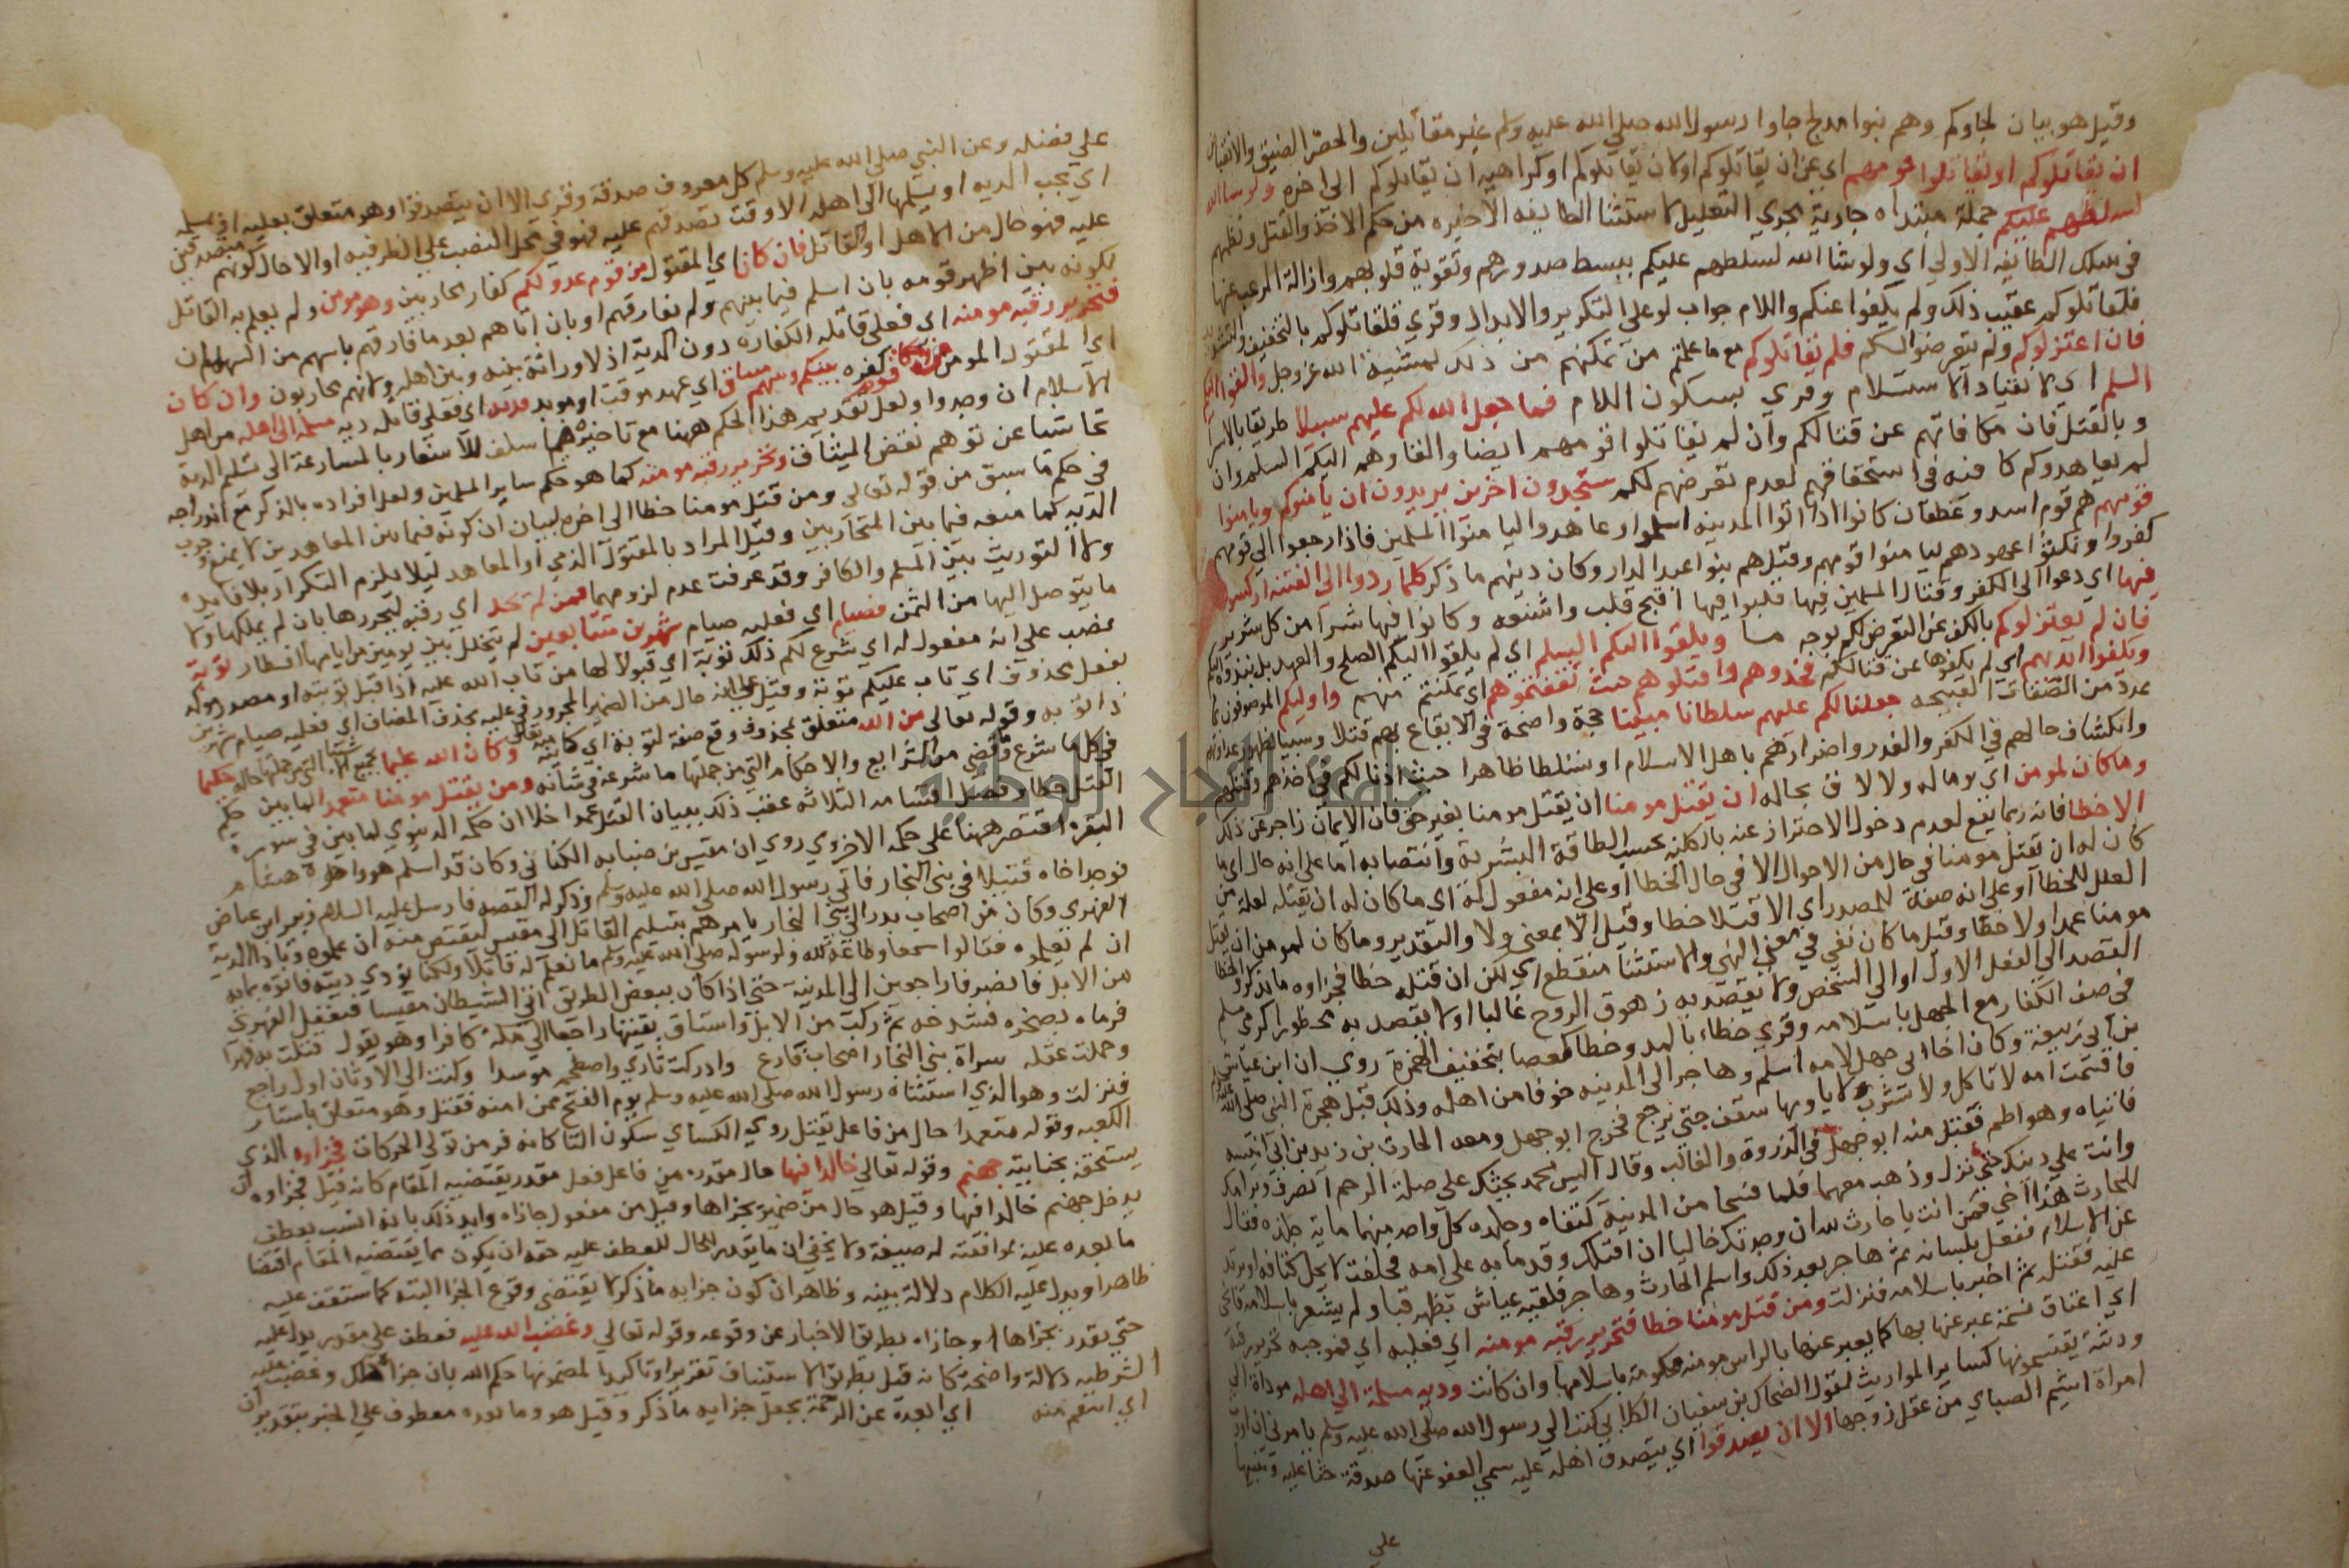 وقيل هو بيان لجاوكم وهم بنوا مدلج جاوا رسول الله صلى الله عليه وسلم غير مقاتلين والحصر الضيق والانقباض
ان يقاتلوكم او يقاتلوا قومهم اي عن ان يقاتلوكم او لان يقاتلوكم او كراهية ان يقاتلوكم الى اخره ولو شا الله
لسلطهم عليكم جملة مبتداه جارية مجرى التعليل لاستثنا الطايفه الاخيره من حكم الاخذ والقتل ونظمهم
في سلك الطايفه الاولى اي ولو شا الله لسلطهم عليكم ببسط صدورهم وتقوية قلوبهم وازالة الرعب عنها
فلقاتلوكم عقيب ذلك ولم يكفوا عنكم واللام جواب لو على التكرير والابدال وقري فلقتلوكم بالتخفيف والتشديد
فان اعتزلوكم ولم يتعرضوا لكم فلم يقاتلوكم مع ما علمتم من تمكنهم من ذلك بمشية الله عز وجل والقوا اليكم
السلم اي الانقياد الاستسلام وقري بسكون اللام فما جعل الله لكم عليهم سبيلا طريقا بالاسر
وبالقتل فان مكافاتهم عن قتالكم وان لم يقاتلوا قومهم ايضا والقاوهم اليكم السلم وان
لم يعاهدوكم كافيه في استحقاقهم لعدم تعرضكم لهم ستجدون اخرين يريدون ان يامنوكم ويامنوا
قومهم هم قوم اسد وغطفان كانوا اذا اتوا المدينه اسلموا وعاهدوا ليامنوا المسلمين فاذا رجعوا الى قومهم
كفروا ونكثوا عهودهم ليامنوا قومهم وقيل هم بنوا عبد الدار وكان دينهم ما ذكر كلما ردوا الى الفتنه اركسوا
فيها اي دعوا الى الكفر وقتال المسلمين فيها قلبوا فيها اقبح قلب واشنعه وكانوا فيها شرا من كل شرير
فان لم يعتزلوكم بالكف عن التعرض لكم بوجه ما ويلقوا اليكم السلم اي لم يلقوا اليكم الصلح والعهد بل نبذوه اليكم
ويكفوا ايديهم اي لم يكفوها عن قتالكم فخذوهم واقتلوهم حيث ثقفتموهم اي تمكنتم منهم واوليكم الموصوفون بما
عدد من الصفات القبيحه جعلنا لكم عليهم سلطانا مبينا حجة واضحة في الايقاع بهم قتلا وسبيا لظهور عداوتهم
وانكشاف حالهم في الكفر والغدر واضرارهم باهل الاسلام او تسلطا ظاهرا حيث اذنا لكم في اخذهم وقتلهم
وما كان لمومن اي وما له ولا لاق بحاله ان يقتل مومنا ان يقتل مومنا بغير حق فان الايمان زاجر عن ذلك
الا خطا فانه ربما يقع لعدم دخول الاحتراز عنه بالكليه تحت الطاقة البشرية وانتصابه اما على انه حال اي ما
كان له ان يقتل مومنا في حال من الاحوال الا في حال الخطا او على انه مفعول له اي ما كان له ان يقتله لعلة من
العلل للخطا او على انه صفة للمصدر اي الا قتلا خطا وقيل الا بمعنى ولا والتقدير وما كان لمومن ان يقتل
مومنا عمدا ولا خطا وقيل ما كان نفي في معنى النهي والاستثنا منقطع اي لكن ان قتله خطا فجزاوه ما يذكر والخطا
القصد الى الفعل الاول او الى الشخص ولا يقصد به زهوق الروح غالبا او لا يقصد به محظورا كرمي مسلم
في صف الكفار مع الجهل باسلامه وقري خطاء بالمد وخطا كعصا بتخفيف الهمزة روي ان ابن عياش
بن ابي ربيعة وكان اخا ابي جهل لامه اسلم وهاجر الى المدينه خوفا من اهله وذلك قبل هجرة النبي صلى الله
واقسمت امه لا تاكل ولا تشرب ولا ياويها سقف حتى يرجع فخرج ابو جهل ومعه الحارث بن زيد بن ابي انيسه
فاتياه وهو اطم ففتل منه ابو جهل في الذروة والغالب وقال اليس محمد يحثك على صلة الرحم انصرف وبر امك
وانت على دينك حتى نزل وذهب معهما فلما فسحا من المدينة كتفاه وجلده كل واحد منهما ماية جلده فقال
للحارث هذا اخي فمن انت يا حارث لله ان وجدتك خاليا ان اقتلك وقدما به على امه فحلفت لا يحل كتافه او يرتد
عن الاسلام ففعل بلسانه ثم هاجر بعد ذلك واسلم الحارث وهاجر فلقيه عياش بظهر قبا ولم يشعر باسلامه فانحى
عليه فقتله ثم اخبر باسلامه فنزلت ومن قتل مومنا خطا فتحرير رقبه مومنه اي فعليه اي فموجبه تحرير رقبة
اي اعتاق نسمة عبر عنها بها كما يعبر عنها بالراس مومنه محكومة باسلامها وان كانت وديه مسلمة الى اهله موداة الى
ورثة يقتسمونها كساير المواريث لقول الضحاك بن سفيان الكلابي كتب الي رسول الله صلى الله عليه وسلم يامرني ان اورث
امراة اشيم الضبابي من عقل زوجها الا ان يصدقوا اي يتصدق اهله عليه سمي العفو عنها صدقة حثا عليه وتنبيها
على
على فضله وعن النبي صلى الله عليه وسلم كل معروف صدقة وقري الا ان يتصدقوا وهو متعلق بعليه او بمسلمه
اي تجب الديه او يسلمها الى اهله الا وقت تصدقهم عليه فهو في محل النصب على الظرفيه او الا حال كونهم متصدقين
عليه فهو حال من الاهل او القاتل فان كان اي المقتول من قوم عدو لكم كفار محاربين وهو مومن ولم يعلم به القاتل
لكونه بين اظهر قومه بان اسلم فيما بينهم ولم يفارقهم او بان اتاهم بعد ما فارقهم باسهم من المهمات
فتحرير رقبه مومنه اي فعلى قاتله الكفارة دون الدية اذ لا وراثة بينه وبين اهله ولانهم محاربون وان كان
اي المقتول المومن من قوم كفره بينكم وبينهم ميثاق اي عهد موقت او موبد فديه اي فعلى قاتله ديه مسلمة الى اهله من اهل
الاسلام ان وجدوا ولعل تقديم هذا الحكم ههنا مع تاخيره فيما سلف للاشعار بالمسارعة الى تسليم الدية
تحاشيا عن توهم نقض الميثاق وتحرير رقبه مومنه كما هو حكم ساير المسلمين ولعل افراده بالذكر مع اندراجه
في حكم ما سبق من قوله تعالى ومن قتل مومنا خطا الى اخره لبيان ان كونه فيما بين المعاهدين لا يمنع وجوب
الديه كما منعه فيما بين المتحاربين وقيل المراد بالمقتول الذمي او المعاهد ليلا يلزم التكرار بلا فايده
ولا التوريث بين المسلم والكافر وقد عرفت عدم لزومهما فمن لم يجد اي رقبة ليحررها بان لم يملكها ولا
ما يتوصل اليها من الثمن فصيام اي فعليه صيام شهرين متتابعين لم يتخلل بين يومين من ايامها افطار توبة
نصب على انه مفعول له اي شرع لكم ذلك توبة اي قبولا لها من تاب الله عليه اذا قبل توبته او مصدر موكد
بفعل محذوف اي تاب عليكم توبة وقيل على انه حال من الضمير المجرور في عليه بحذف المضاف اي فعليه صيام شهرين
ذا توبه وقوله تعالى من الله متعلق بمحذوف وقع صفة لتوبة اي كاينة منه تعالى وكان الله عليما بجميع الاشيا التي من جملتها حاله حكيما
في كل ما شرع وقضى من الشرايع والاحكام التي من جملتها ما شرعه في شانه ومن يقتل مومنا متعمدا لما بين حكم
القتل خطا وفصل اقسامه الثلاثه عقب ذلك ببيان القتل عمدا خلا ان حكمه الدنيوي لما بين في سورة
البقره اقتصر ههنا على حكمه الاخروي روي ان مقيس بن ضبابه الكناني وكان قد اسلم هو واخوه هشام
فوجد اخاه قتيلا في بني النجار فاتى رسول الله صلى الله عليه وسلم وذكر له القصه فارسل عليه السلام زبير ابن عياض
الفهري وكان من اصحاب بدر الى بني النجار يامرهم بتسليم القاتل الى مقيس ليقتص منه ان علموه وبادا الدية
ان لم يعلموه فقالوا سمعا وطاعة لله ولرسوله صلى الله عليه وسلم ما نعلم له قاتلا ولكنا نودي ديته فاتوه بمايه
من الابل فانصرفا راجعين الى المدينة حتى اذا كان ببعض الطريق اتى الشيطان مقيسا فتغفل الفهري
فرماه بصخره فشدخه ثم ركب من الابل واستاق بقيتها راجعا الى مكه كافرا وهو يقول قتلت به فهرا
وحملت عقله سراة بني النجار اصحاب قارع وادركت ثاري واضطجعت موسدا وكنت الى الاوثان اول راجع
فنزلت وهو الذي استثناه رسول الله صلى الله عليه وسلم يوم الفتح ممن امنه فقتل وهو متعلق باستار
الكعبه وقوله متعمدا حال من فاعل يقتل روي الكساي سكون التا كانه فر من توالي الحركات فجزاوه الذي
يستحقه بجنايته جهنم وقوله تعالى خالدا فيها حال مقدره من فاعل فعل مقدر يقتضيه المقام كانه قيل فجزاوه ان
يدخل جهنم خالدا فيها وقيل هو حال من ضمير يجزاها وقيل من مفعول جازاه وايد ذلك بانه انسب بعطف
ما بعده عليه لموافقته له صيغة ولا يخفى ان ما يقدر للحال للعطف عليه حقه ان يكون مما يقتضيه المقام اقتضا
ظاهرا ويدل عليه الكلام دلالة بينه وظاهر ان كون جزايه ما ذكر لا يقتضي وقوع الجزا البته كما ستقف عليه
حتى يقدر يجزاها او جازاه بطريق الاخبار عن وقوعه وقوله تعالى وغضب الله عليه عطف على مقدر يدل عليه
الشرطيه دلالة واضحة كانه قيل بطريق الاستيناف تقريرا وتاكيدا لمضمونها حكم الله بان جزاه ذلك وغضب عليه
اي انتقم منه اي ابعده عن الرحمة بجعل جزايه ما ذكر وقيل هو وما بعده معطوف على الخبر بتقدير ان
جامعة النجاح الوطنية